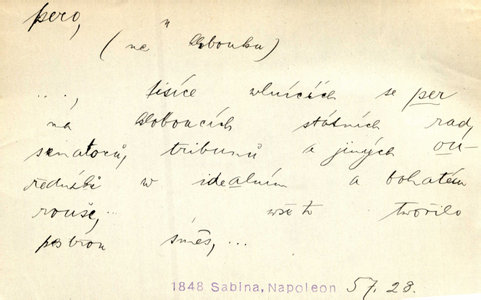 pero,
( na klobouku )
..., tisíce vlnících se per
na kloboucích státních rad,
senátorů, tribunů a jiných ou-
redníků w idealním a bohatém
rouše,... wše to twořilo
pestrou směs,...
1848 Sabina, Napoleon 57. 28.